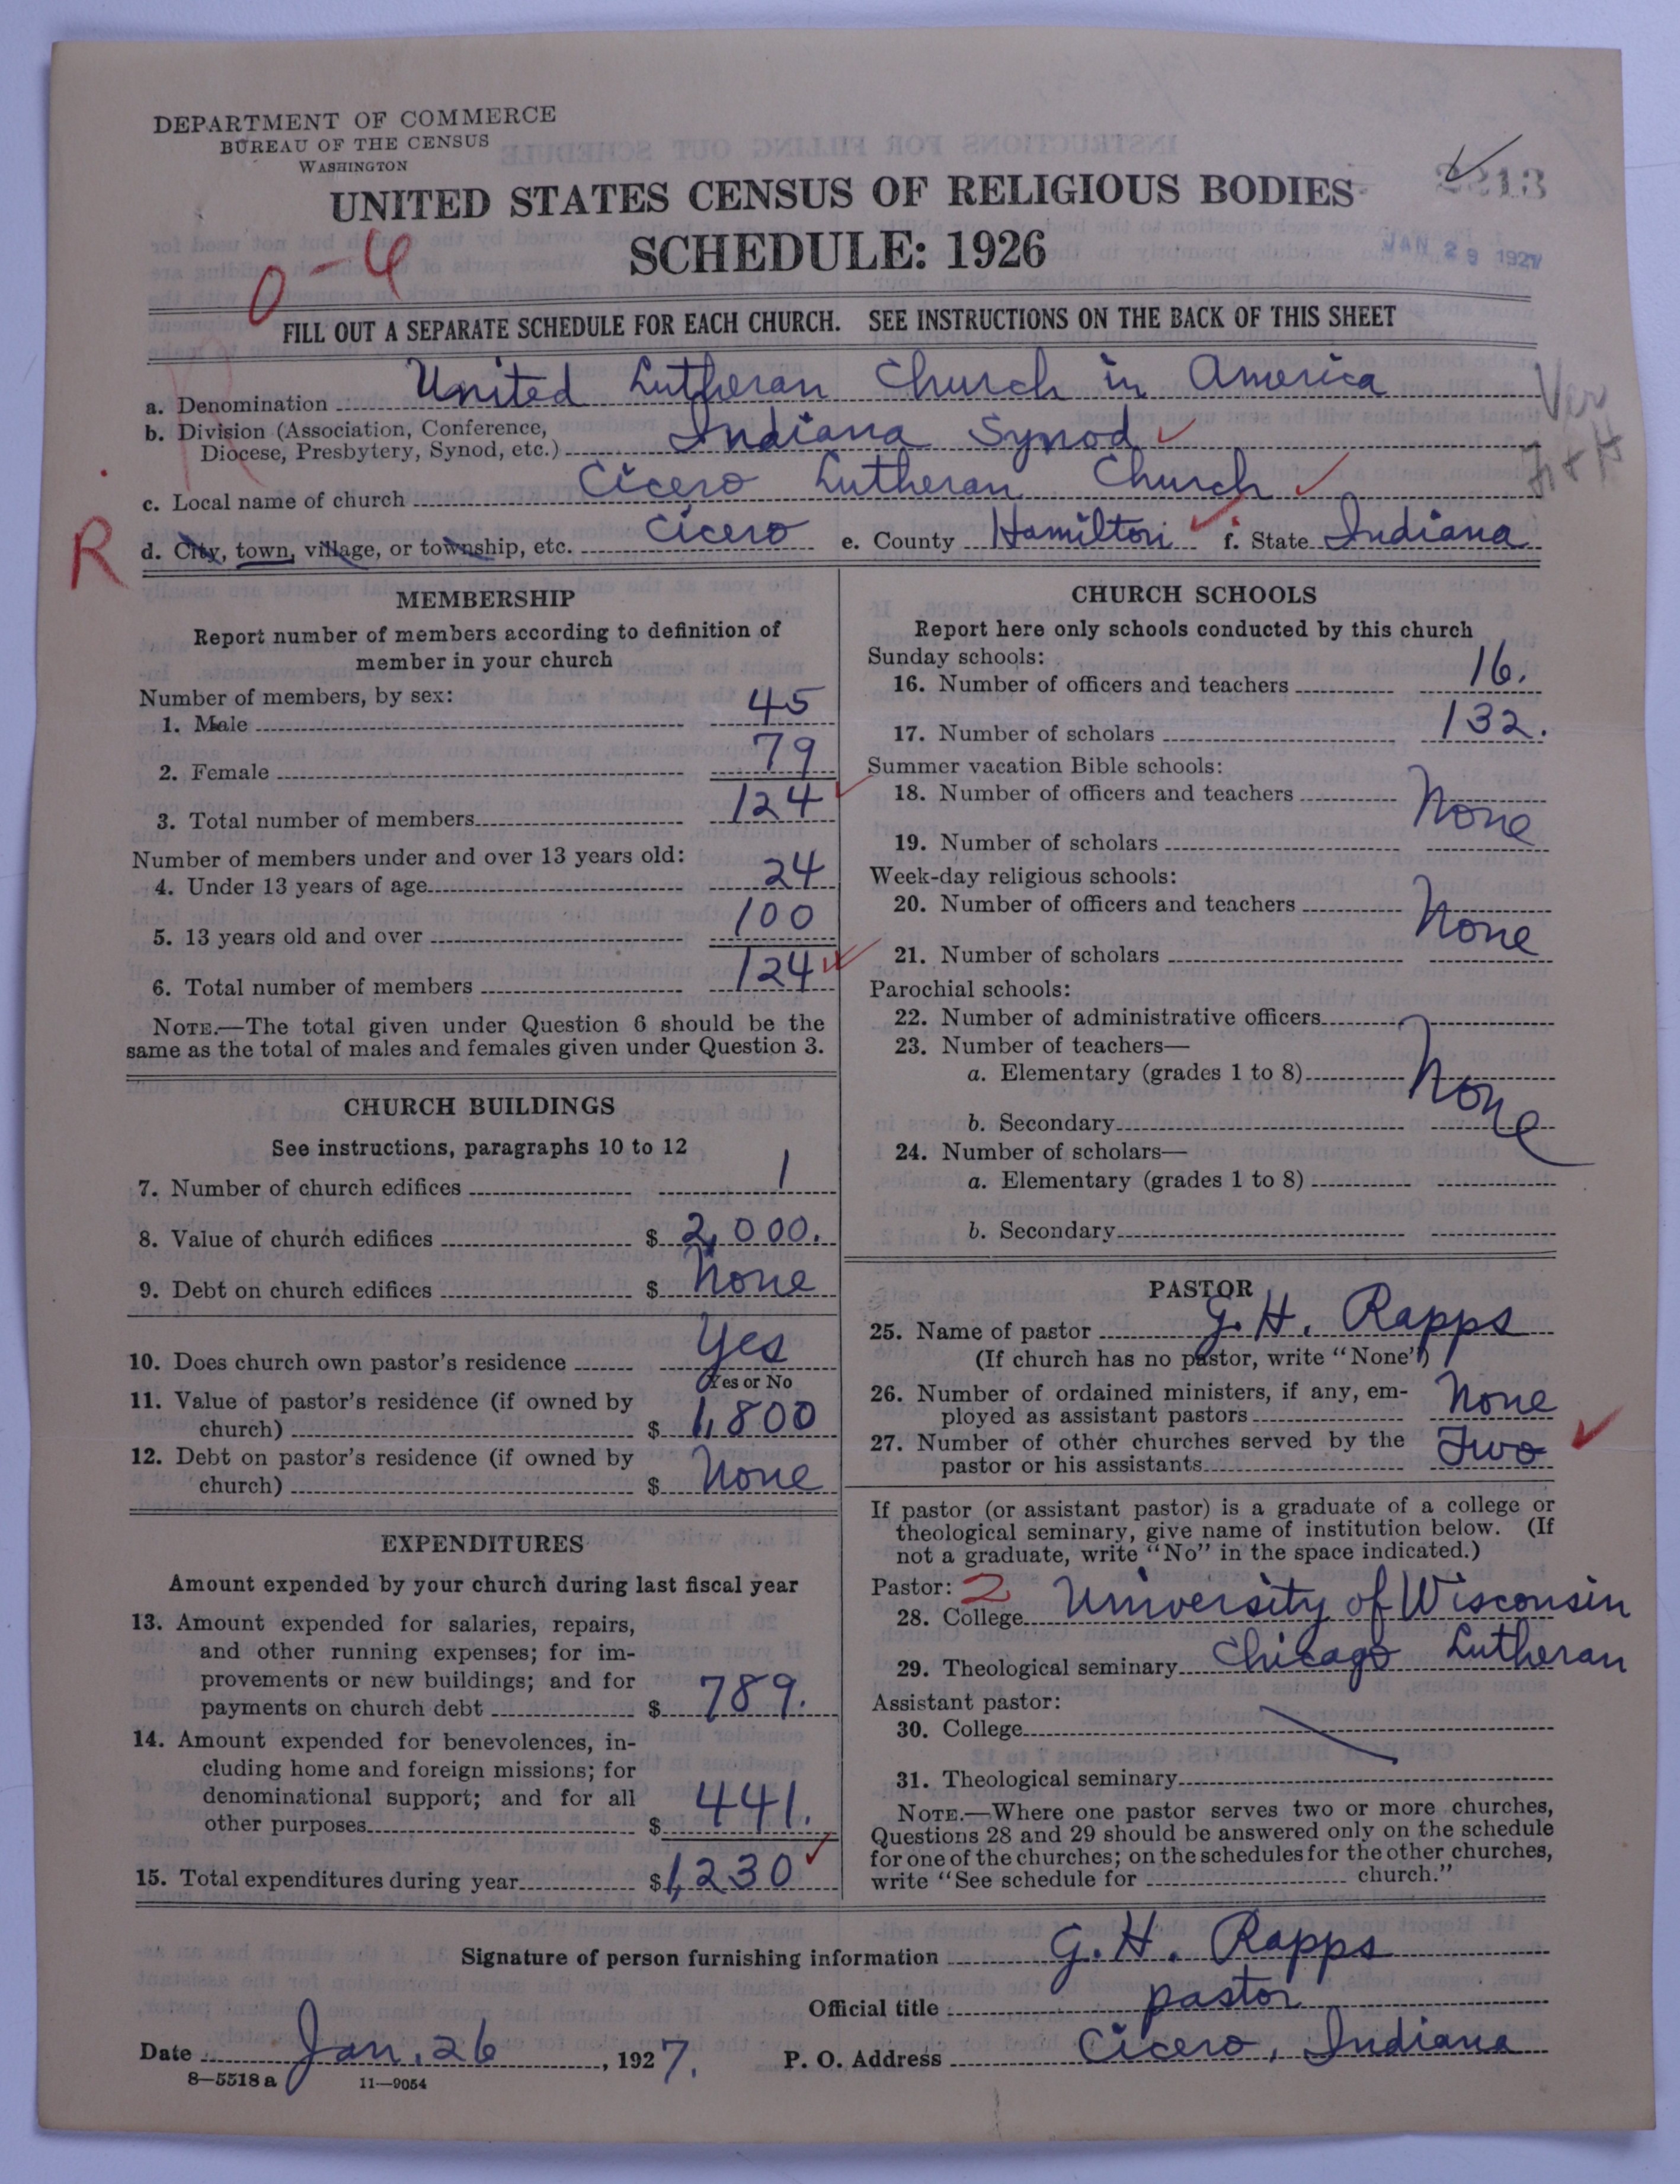 DEPARTMENT OF COMMERCE
BUREAU OF THE CENSUS
WASHINGTON
UNITED STATES CENSUS OF RELIGIOUS BODIES
SCHEDULE: 1926
JAN 29 1927
0-4
FILL OUT A SEPARATE SCHEDULE FOR EACH CHURCH. SEE INSTRUCTIONS ON THE BACK OF THIS SHEET
a. Denomination United Lutheran Church in America
b. Division (Association, Conference, Diocese, Presbytery, Synod, etc.) Indiana Synod
c. Local name of church Cicero Lutheran Church
R
d. City, town, village, or township, etc. Cicero e. County Hamilton f. State Indiana
MEMBERSHIP
Report number of members according to definition of
member in your church
Number of members, by sex:
1. Male 45
2. Female 79
3. Total number of members 124
Number of members under and over 13 years old:
4. Under 13 years of age 24
5. 13 years old and over 100
6. Total number of members 124
NOTE.—The total given under Question 6 should be the
same as the total of males and females given under Question 3.
CHURCH BUILDINGS
See instructions, paragraphs 10 to 12
7. Number of church edifices 1
8. Value of church edifices $ 2,000.
9. Debt on church edifices $ None
10. Does church own pastor's residence Yes
Yes or No
11. Value of pastor's residence (if owned by
church) $ 1,800
12. Debt on pastor's residence (if owned by
church) $ None
EXPENDITURES
Amount expended by your church during last fiscal year
13. Amount expended for salaries, repairs,
and other running expenses; for im-
provements or new buildings; and for
payments on church debt $ 789.
14. Amount expended for benevolences, in-
cluding home and foreign missions; for
denominational support; and for all
other purposes $ 441.
15. Total expenditures during year $ 1,230
CHURCH SCHOOLS
Report here only schools conducted by this church
Sunday schools:
16. Number of officers and teachers 16.
17. Number of scholars 132.
Summer vacation Bible schools:
18. Number of officers and teachers None
19. Number of scholars
Week-day religious schools:
20. Number of officers and teachers None
21. Number of scholars
Parochial schools:
22. Number of administrative officers
23. Number of teachers—
a. Elementary (grades 1 to 8) None
b. Secondary
24. Number of scholars—
a. Elementary (grades 1 to 8)
b. Secondary
PASTOR
25. Name of pastor G. H. Rapps
(If church has no pastor, write "None")
26. Number of ordained ministers, if any, em-
ployed as assistant pastors None
27. Number of other churches served by the
pastor or his assistants Two
If pastor (or assistant pastor) is a graduate of a college or
theological seminary, give name of institution below. (If
not a graduate, write "No" in the space indicated.)
Pastor: 2
28. College University of Wisconsin
29. Theological seminary Chicago Lutheran
Assistant pastor:
30. College
31. Theological seminary
NOTE.—Where one pastor serves two or more churches,
Questions 28 and 29 should be answered only on the schedule
for one of the churches; on the schedules for the other churches,
write "See schedule for church."
Signature of person furnishing information G. H. Rapps
Official title pastor
Date Jan. 26, 1927. P. O. Address Cicero, Indiana
8—5518 a 11—9054